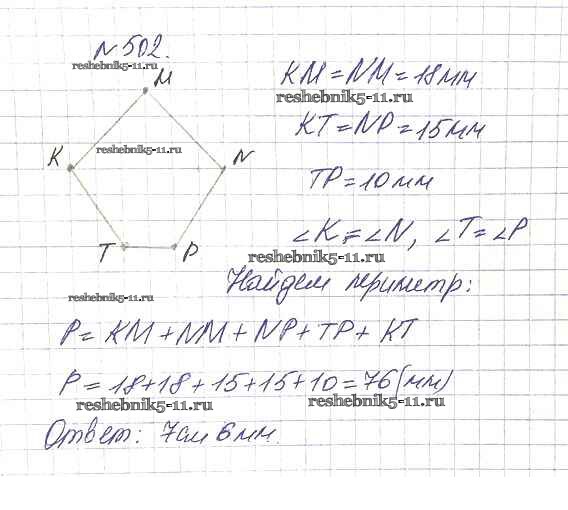 N 502.
reshebnik5-11.ru
M
KM = NM = 18 мм
reshebnik5-11.ru
KT = NP = 15 мм
reshebnik5-11.ru
K
N
TP = 10 мм
T
P
∠K = ∠N, ∠T = ∠P
reshebnik5-11.ru
Найдем периметр:
reshebnik5-11.ru
P = KM + NM + NP + TP + KT
P = 18 + 18 + 15 + 15 + 10 = 76 (мм)
reshebnik5-11.ru
reshebnik5-11.ru
Ответ: 7 см 6 мм.